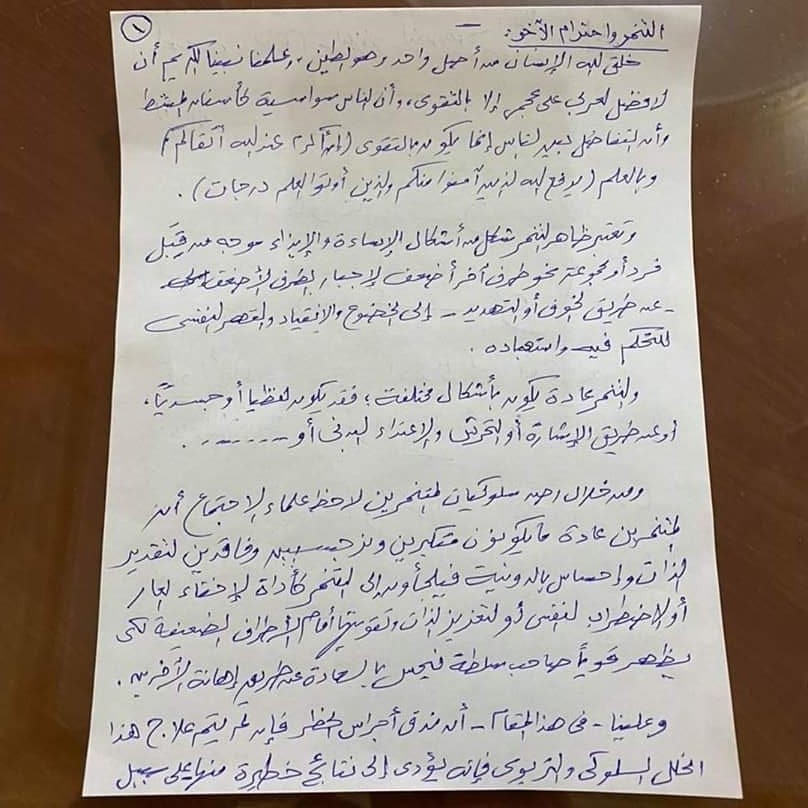 ١
التنمر واحترام الآخر:
خلق الله الإنسان من أصل واحد وهو الطين، وعلمنا نبينا الكريم أن
لا فضل لعربي على عجمي إلا بالتقوى، وأن الناس سواسية كأسنان المشط
وأن التفاضل بين الناس إنما يكون بالتقوى (إن أكرمكم عند الله أتقاكم)
وبالعلم (يرفع الله الذين آمنوا منكم والذين أوتوا العلم درجات).
وتعتبر ظاهر التنمر شكل من أشكال الإساءة والإيذاء موجه من قِبَل
فرد أو مجموعة نحو طرف آخر أضعف لإجبار الطرف الأضعف
- عن طريق الخوف أو التهديد - إلى الخضوع والانقياد والقهر النفسي
للتحكم فيه واستعباده.
والتنمر عادة يكون بأشكال مختلفة؛ فقد يكون لفظيا أو جسديًّا،
أو عن طريق الإشارة أو التحرش والاعتداء البدني أو .......
ومن خلال رصد سلوكيات المتنمرين لاحظ علماء الاجتماع أن
المتنمرين عادة ما يكونون متكبرين ونرجسيين وفاقدين لتقدير
الذات وإحساس بالدونية فيلجأون إلى التنمر كأداة لإخفاء العار
أو الاضطراب النفسي أو لتعزيز الذات وتقويتها أمام الأطراف الضعيفة لكي
يظهر قويًا صاحب سلطة فيحس بالسعادة عن طريق إهانة الآخرين.
وعلينا - في هذا المقام - أن ندق أجراس الخطر فإن لم يتم علاج هذا
الخلل السلوكي والتربوي فإنه يؤدي إلى نتائج خطيرة منها على سبيل